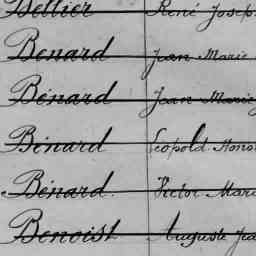 Bellier René Joseph
Benard Jean Marie
Bénard Jean Marie
Bénard Léopold Honor
Bénard Victor Mari
Benoist Auguste Jea